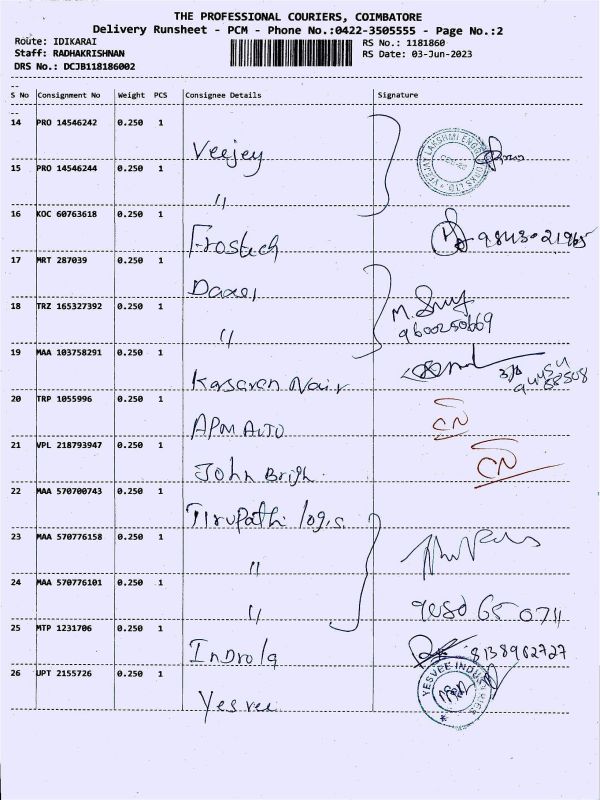 THE PROFESSIONAL COURIERS, COIMBATORE
Delivery Runsheet - PCM - Phone No.:0422-3505555 - Page No.:2
Route: IDIKARAI
RS No.: 1181860
Staff: RADHAKRISHNAN
RS Date: 03-Jun-2023
DRS No.: DCJB118186002
S No Consignment No Weight PCS Consignee Details Signature
14 PRO 14546242 0.250 1 Veejey
15 PRO 14546244 0.250 1 "
16 KOC 60763618 0.250 1 Frostech 98430 21965
17 MRT 287039 0.250 1
18 TRZ 165327392 0.250 1 " 9600250669
19 MAA 103758291 0.250 1 Nair
20 TRP 1055996 0.250 1 APM AUTO CN
21 VPL 218793947 0.250 1 John CN
22 MAA 570700743 0.250 1 Tirupathi logis
23 MAA 570776158 0.250 1 "
24 MAA 570776101 0.250 1 " 9080 650711
25 MTP 1231706 0.250 1 Indrola 8138962727
26 UPT 2155726 0.250 1 Yesvee YESVEE